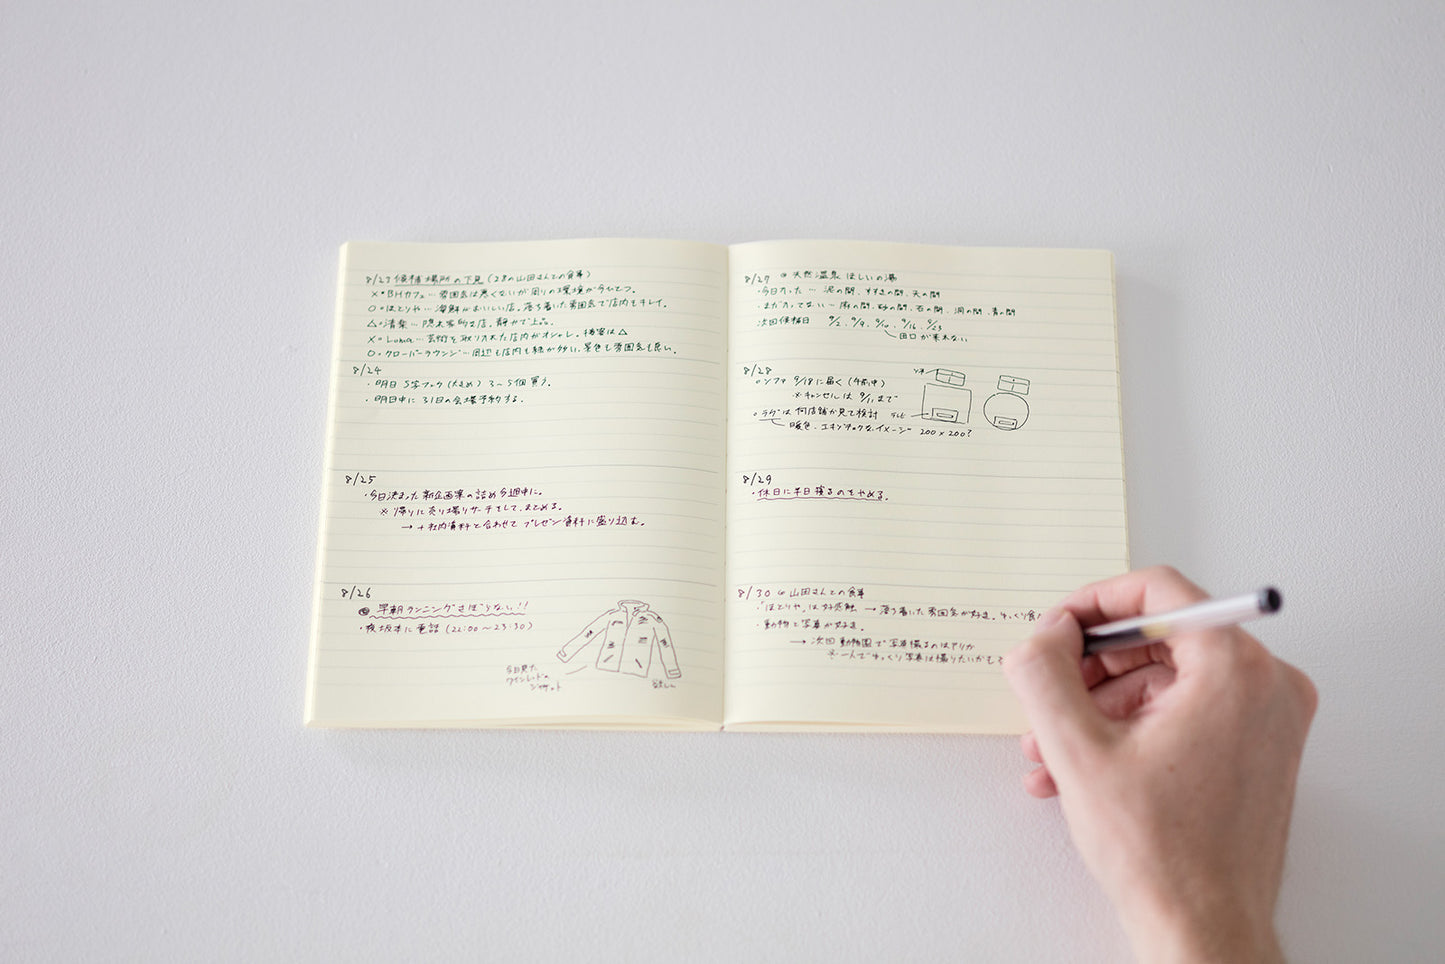 8/23 候補場所の下見（28の山田さんとの食事）
×・BHカフェ…雰囲気は悪くないが周りの環境が今ひとつ。
○・ほとりや…海鮮がおいしい店。落ち着いた雰囲気で店内もキレイ。
△・清葉…隠れ家的な店。静かで上品。
×・Loma…芸術を取り入れた店内がオシャレ。接客は△
○・クローバーラウンジ…周辺も店内も緑が多い。景色も雰囲気も良い。
8/24
・明日 S字フック（大きめ）3〜5個買う。
・明日中に31日の会場予約する。
8/25
・今日決まった新企画案の詰め今週中に。
※帰りに売り場リサーチをして、まとめる。
→＋社内資料と合わせてプレゼン資料に盛り込む。
8/26
早朝ランニングさぼらない!!
・夜坂本に電話（22:00〜23:30）
今日見た
ワインレッドの
ジャケット
欲しい
8/27 天然温泉 ほしいの湯
・今日入った…泥の間、すすきの間、天の間
・まだ入ってない…雨の間、砂の間、石の間、洞の間、青の間
次回候補日 9/2、9/9、9/10、9/16、9/23
田口が来れない
8/28
○ソファ 9/18に届く（午前中）
※キャンセルは 9/11まで
○ラグは何店舗か見て検討
暖色、エキゾチックなイメージ 200×200?
ソファ
テレビ
8/29
・休日に半日寝るのをやめる。
8/30 山田さんとの食事
・「ほとりや」は好感触 → 落ち着いた雰囲気が好き。ゆっくり食
・動物と写真が好き。
→次回動物園で写真撮るのはアリか
※一人でゆっくり写真は撮りたいかも